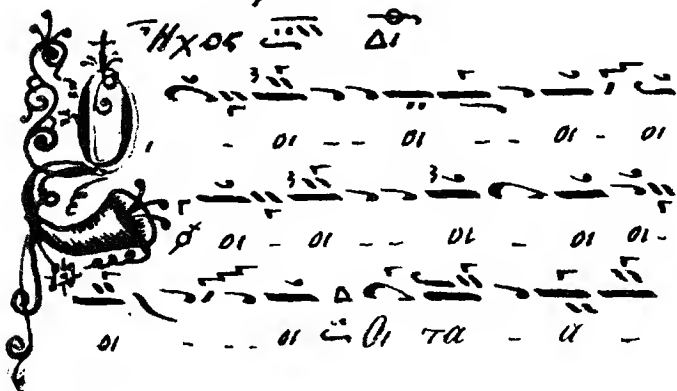 Ηχος Δι
- οι - - οι - - οι - οι
οι - οι - - οι - οι οι -
οι - - - οι Οι τα - α -